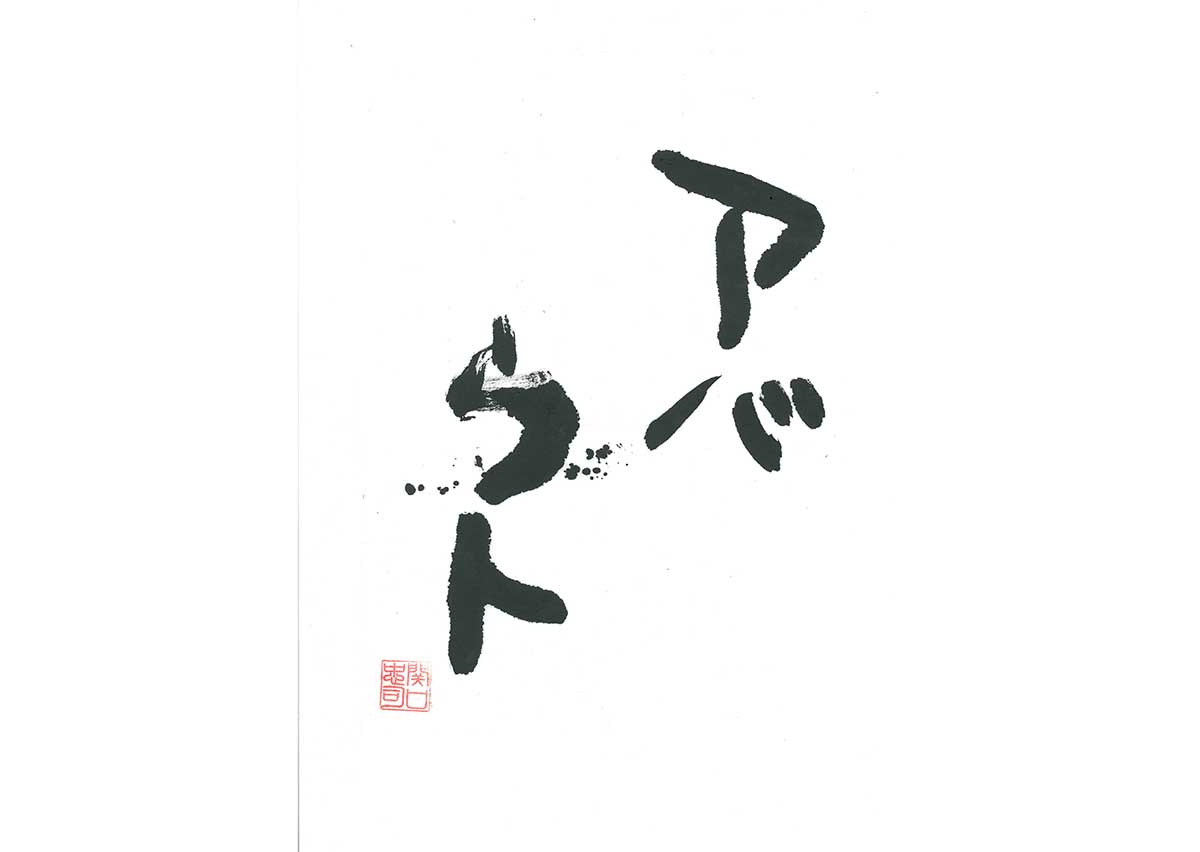 アバ
ウト
関口
忠司